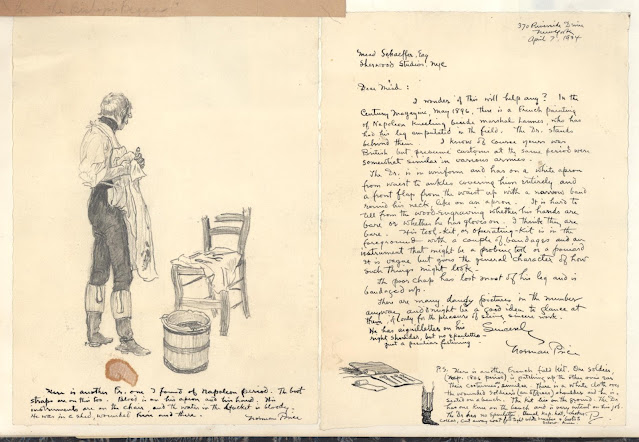 "the Bishop's Beggar"
Here is another Dr. one I found of Napoleon period. The boot
straps are on this too. Blood is on his apron and his hand. His
instruments are on the chair and the water in the bucket is bloody.
He was in a shed, wounded here and there. Norman Price
370 Riverside Drive
New York
April 7. 1934
Mead Schaeffer, Esq
Sherwood Studios, NYC
Dear Mead:
I wonder if this will help any? In the
Century Magazine, May 1896, there is a French painting
of Napoleon kneeling beside marshal Lannes, who has
had his leg amputated in the field. The Dr. stands
behind them. I know of course yours was
British but presume customs at the same period were
somewhat similar in various armies.
The Dr. is in uniform and has on a white apron
from waist to ankles covering him entirely and
a front flap from the waist up with a narrow band
round his neck, like on an apron. It is hard to
tell from the wood-engraving whether his hands are
bare or whether he has gloves on. I think they are
bare. His tool-kit, or operating-kit is in the
foreground with a couple of bandages and an
instrument that might be a probing tool or a poniard
It is vague but gives the general character of how
such things might look.
The poor chap has lost most of his leg and is
bandaged up.
There are many dandy pictures in the number
anyway, and might be a good idea to glance at
them, if only for the pleasure of seeing sincere work.
He has aiguillettes on his
right shoulder, but no epaulettes
just a peculiar fastening.
Sincerely
Norman Price
P.S. Here is another French field kit. One soldier
is patching up the other one sees
their costumes, similar. There is a white cloth over
the wounded soldier's (an officer) shoulders and he is
seated on a bench. The kit is on the ground. The Dr.
has one knee on the bench and is very intent on his job.
The Dr. has no epaulettes